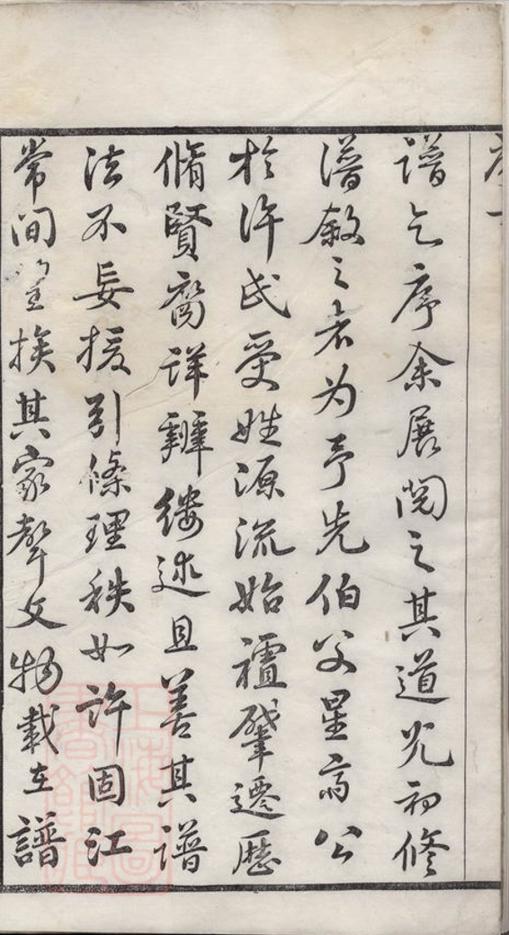 譜乞序余展閱之其道光初修
譜敘之者为予先伯父星齋公
於许氏受姓源流始禋肇遷歷
脩賢裔详辨缕述且善其譜
法不妄援引條理秩如許固江
常间望族其家聲文物載在譜